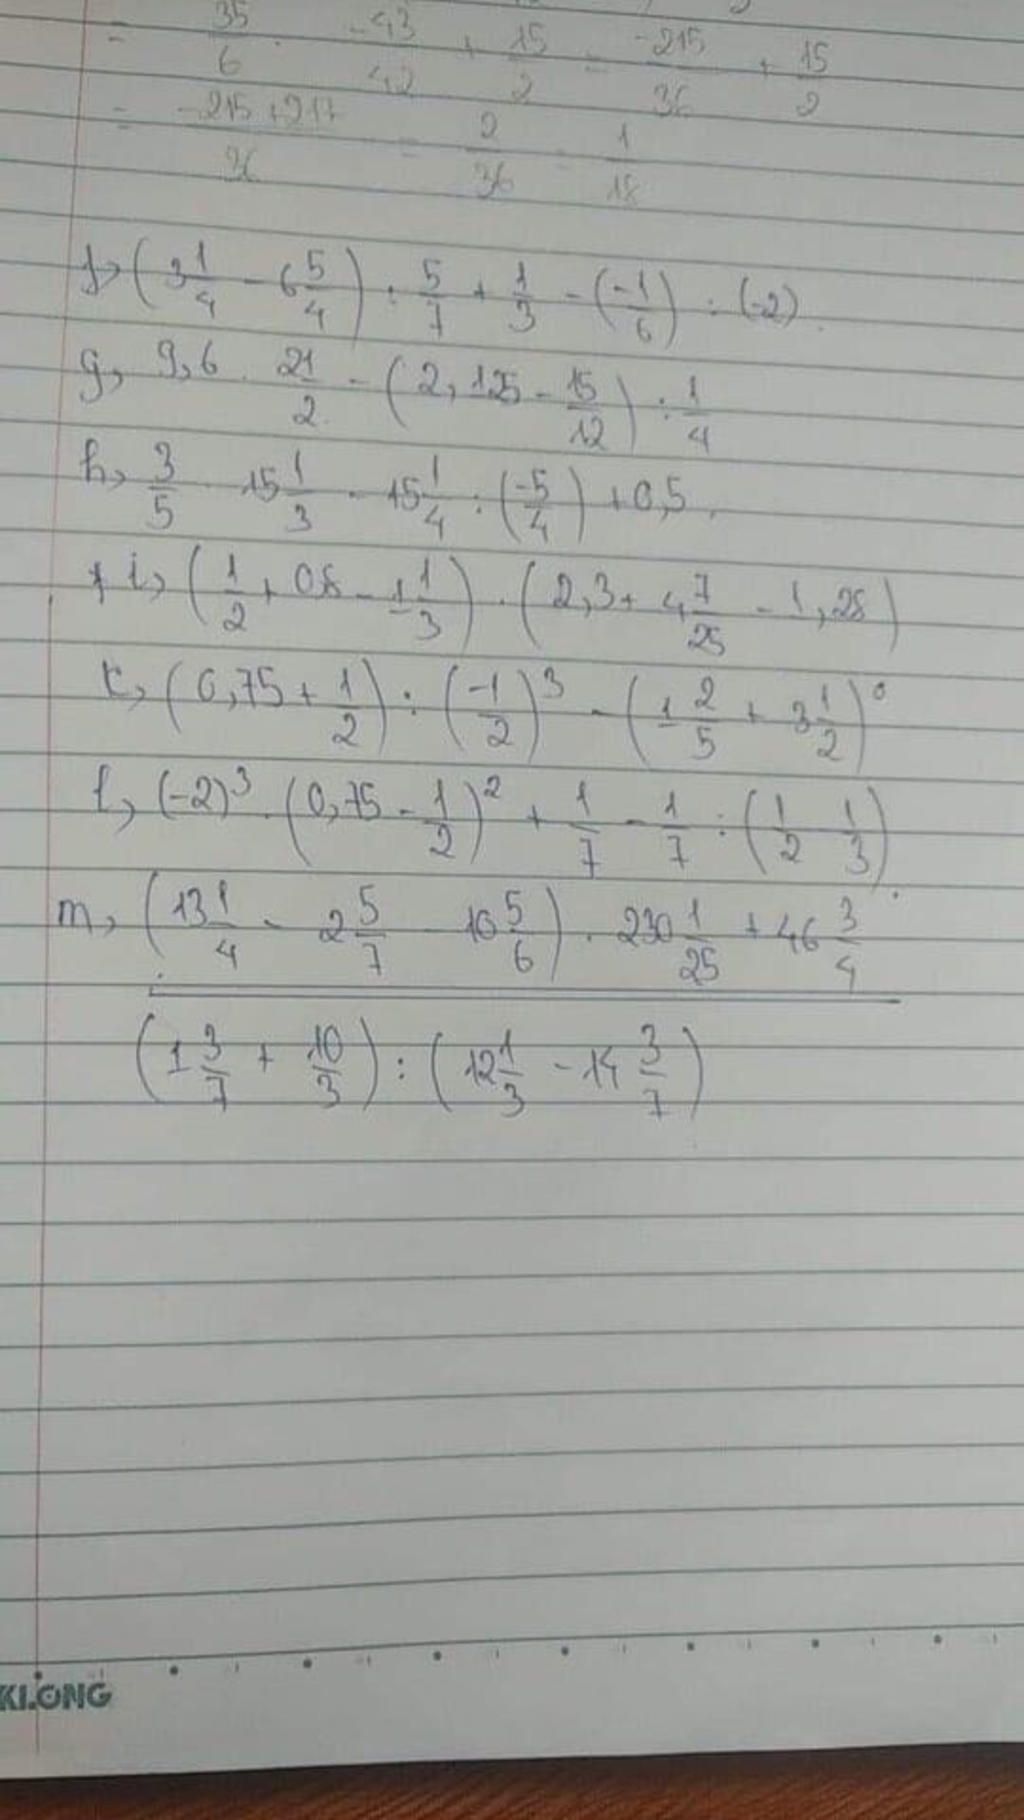 = 35/6 . -43/42 + 15/2 = -215/36 + 15/2
= -215+217/36 = 2/36 = 1/18
f, (3 1/4 - 6 5/4) : 5/7 + 1/3 - (-1/6) : (-2).
g, 9,6 . 21/2 - (2,125 - 15/12) : 1/4
h, 3/5 . 15 1/3 - 15 1/4 : (-5/4) + 0,5.
i, (1/2 + 0,8 - 1 1/3) . (2,3 + 4 7/25 - 1,28)
k, (0,75 + 1/2) : (-1/2)³ - (1 2/5 + 3 1/2)⁰
l, (-2)³ . (0,75 - 1/2)² + 1/7 - 1/7 : (1/2 1/3).
m, (13 1/4 - 2 5/7 - 10 5/6) . 230 1/25 + 46 3/4
(1 3/7 + 10/3) : (12 1/3 - 14 3/7)
KLONG